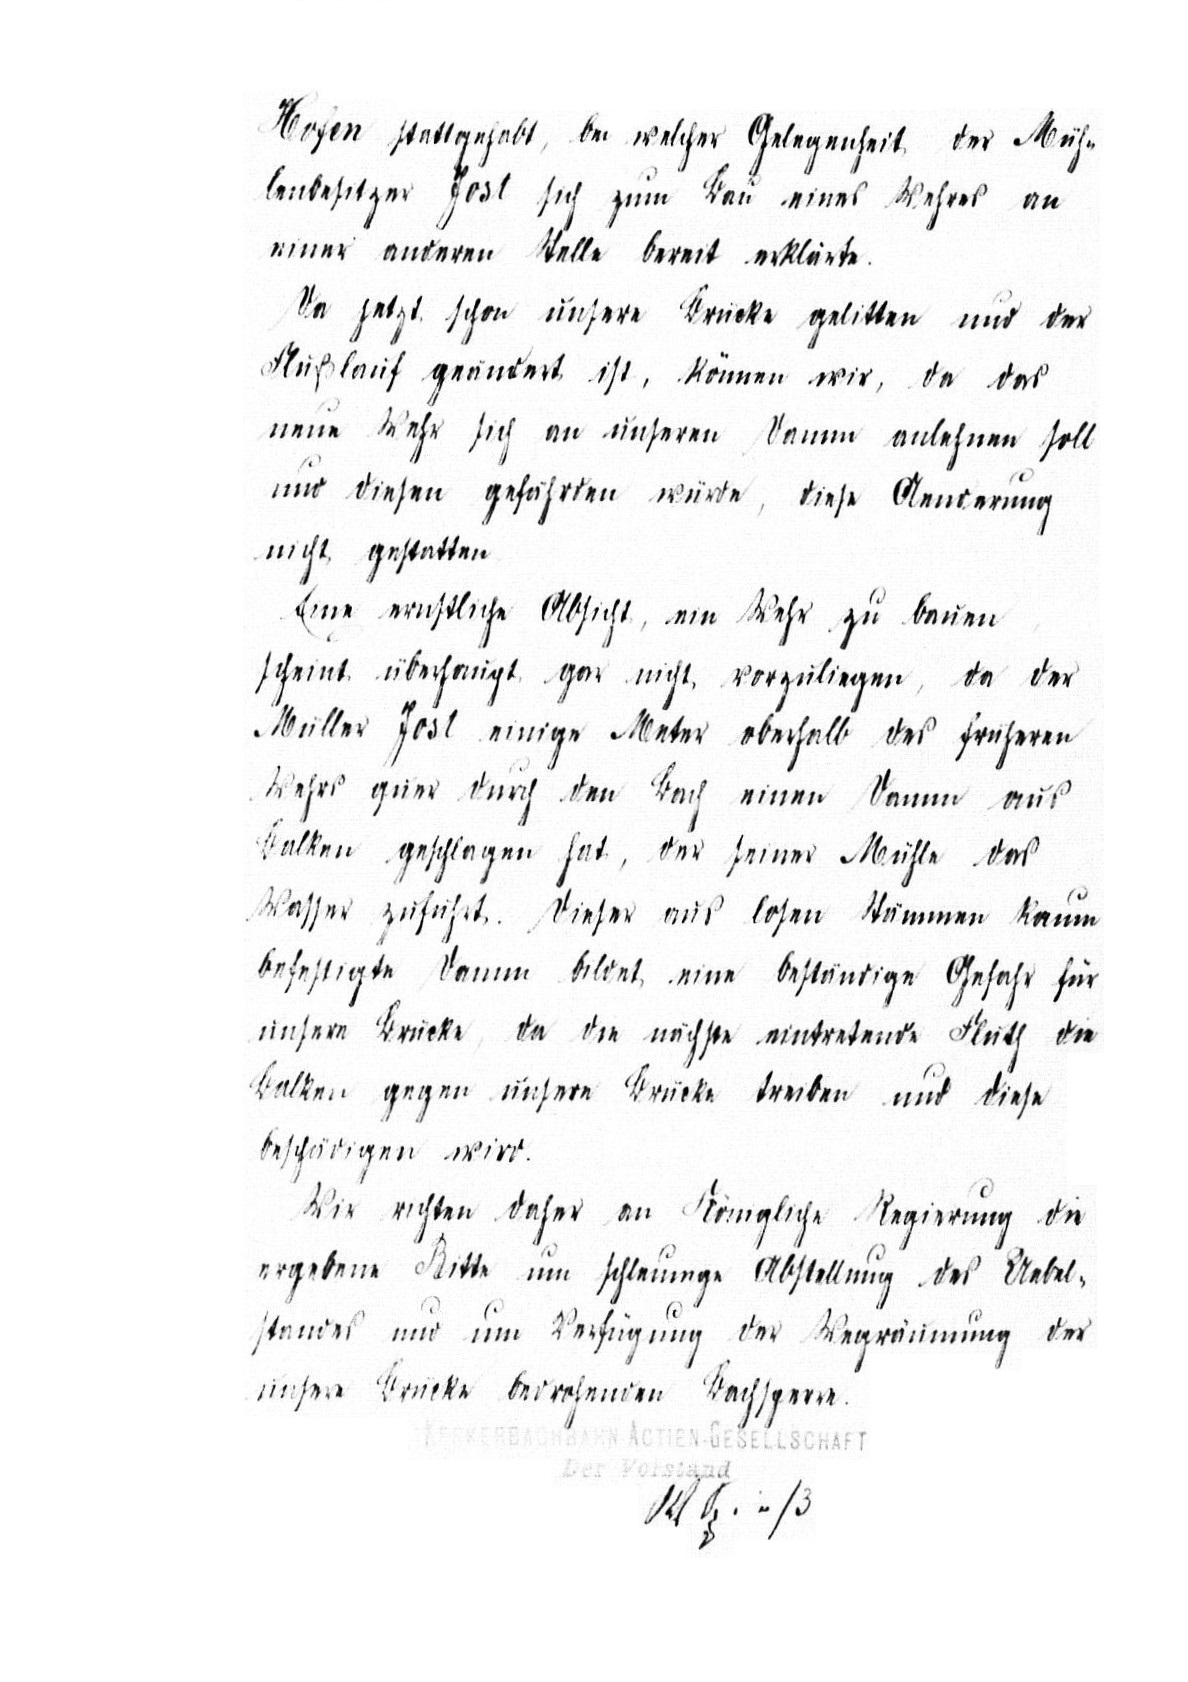 Hofen stattgehabt, bei welcher Gelegenheit der Müh-
lenbesitzer Jost sich zum Bau eines Wehres an
einer anderen Stelle bereit erklärte.
Da jetzt schon unsere Brücke gelitten und der
Flußlauf geändert ist, können wir, da das
neue Wehr sich an unseren Damm anlehnen soll
und diesen gefährden würde, diese Aenderung
nicht gestatten
Eine ernstliche Absicht, ein Wehr zu bauen,
scheint überhaupt gar nicht vorzuliegen, da der
Müller Jost einige Meter oberhalb des früheren
Wehrs quer durch den Bach einen Damm aus
Balken geschlagen hat, der seiner Mühle das
Wasser zuführt. Dieser aus losen Stämmen kaum
befestigte Damm bildet eine beständige Gefahr für
unsere Brücke, da die nächste eintretende Fluth die
Balken gegen unsere Brücke treiben und diese
beschädigen wird.
Wir richten daher an Königliche Regierung die
ergebene Bitte um schleunige Abstellung des Uebel-
standes und um Verfügung der Wegräumung der
unsere Brücke bedrohenden Bachsperre.
KERKERBACHBAHN-ACTIEN-GESELLSCHAFT
Der Vorstand